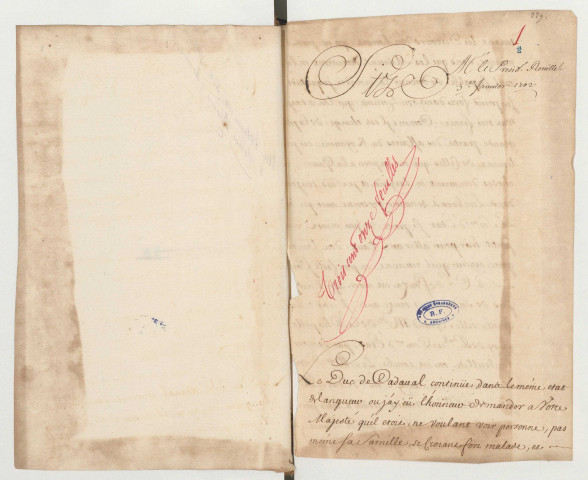 1
2
Sire
Mr. le Presid. Rouillé
Trois cent onze feuilles
R. F.
Le Duc de Cadaval continüe dans le méme etat
de langueur ou j'ay eü l'honneur de mander a Votre
Majesté qu'il etoit, ne voulant voir personne, pas
meme sa famille, se croiant fort malade, et